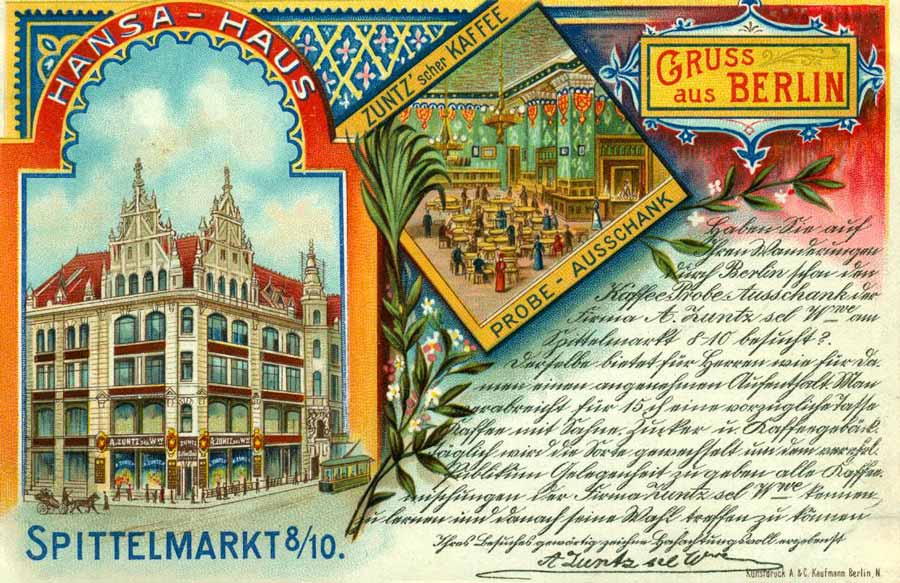 HANSA-HAUS
ZUNTZ'scher KAFFEE
PROBE-AUSSCHANK
GRUSS
aus BERLIN
A. ZUNTZ SEL. Wwe
ZUNTZ
A. ZUNTZ SEL. Wwe
SPITTELMARKT 8/10.
Haben Sie auf
Ihren Wanderungen
durch Berlin schon den
Kaffee Probe Ausschank der
Firma A. Zuntz sel Wwe am
Spittelmarkt 8-10 besucht?
Derselbe bietet für Herren wie für Da-
men einen angenehmen Aufenthalt Man
verabreicht für 15 eine vorzügliche Tasse
Kaffee mit Sahne, Zucker u. Kaffeegebäck
täglich wird die Sorte gewechselt um dem verehrl.
Publikum Gelegenheit zu geben alle Kaffee-
mischungen der Firma Zuntz sel Wwe kennen
zu lernen und danach seine Wahl treffen zu können
Ihres Besuches gewärtig zeichne Hochachtungsvoll ergebenst
A. Zuntz sel Wwe
Kunstdruck A. & C. Kaufmann Berlin, N.